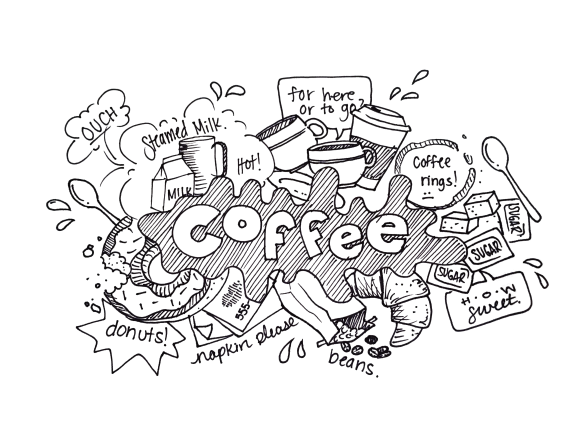 OUCH
Steamed Milk.
for here
or to go?
Hot!
MILK
Coffee
rings!
Coffee
SUGAR
SUGAR
SUGAR
H.O.W
sweet.
555-
donuts!
napkin please
beans.